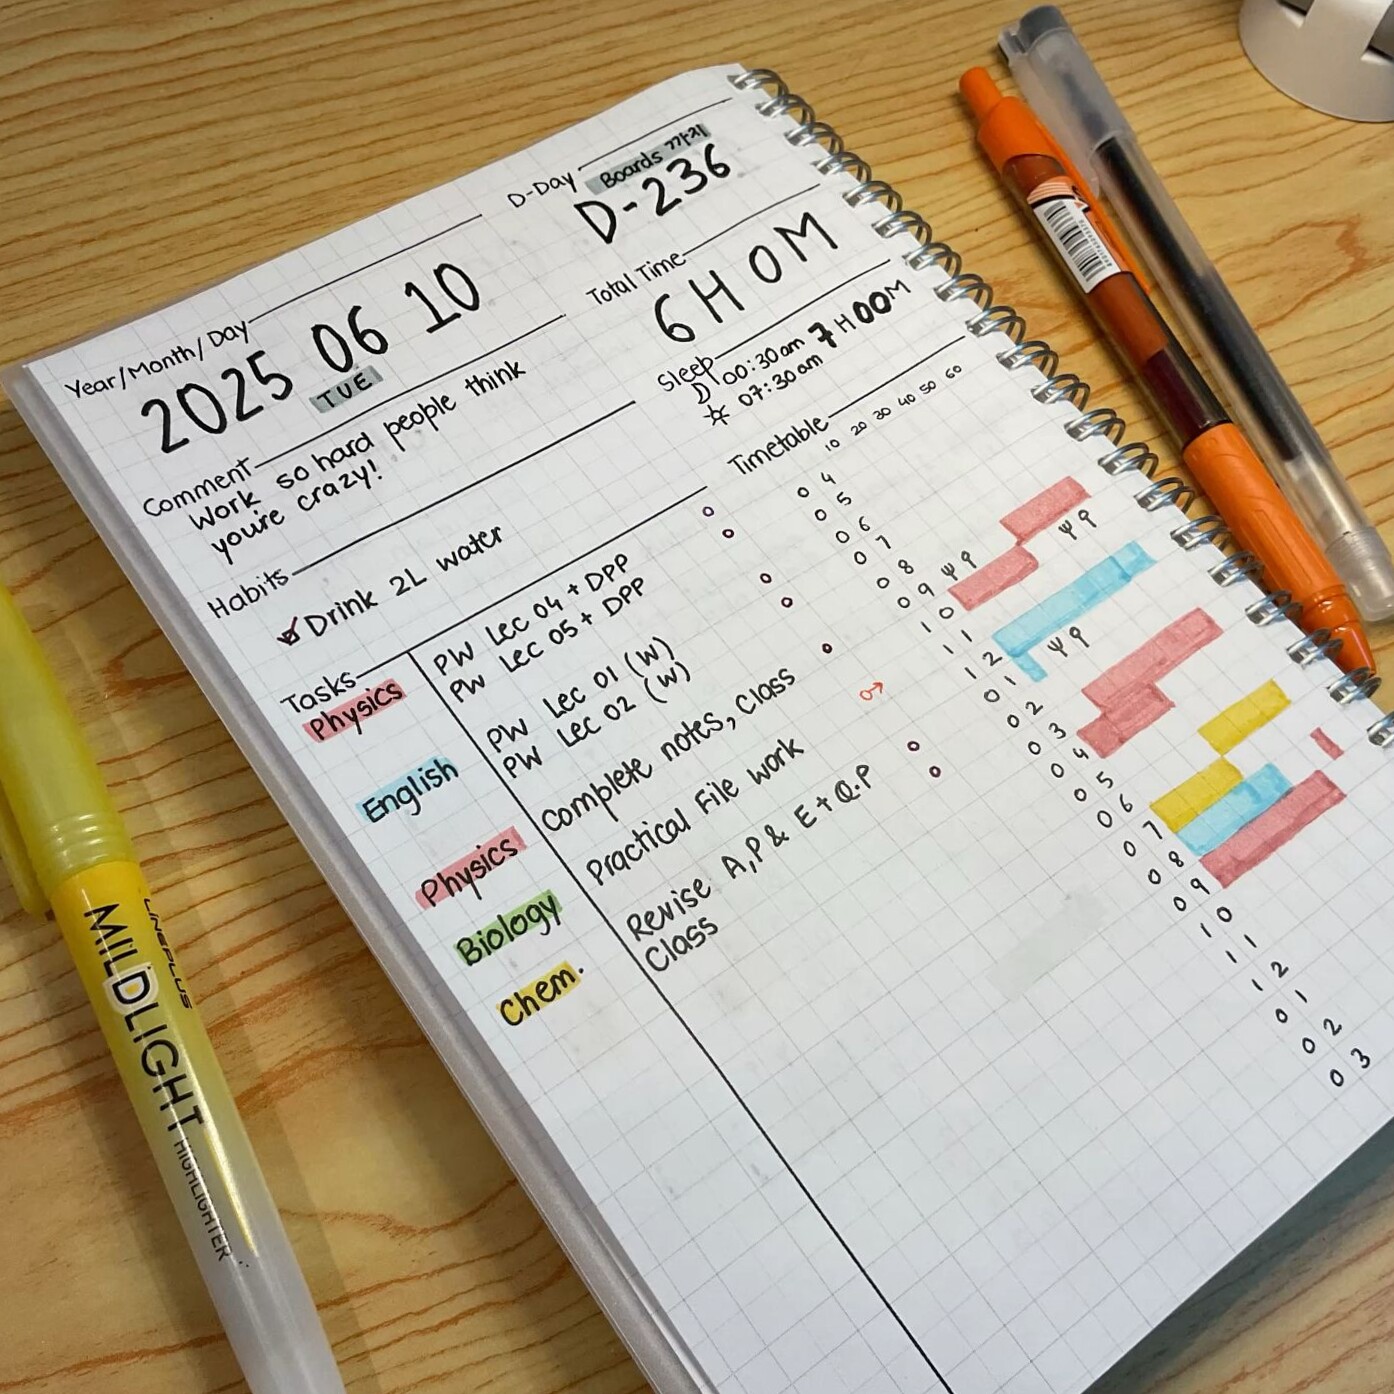 D-Day
Boards 까지
D-236
Year/Month/Day
2025 06 10
TUE
Total Time
6H 0M
Comment
Work so hard people think
you're crazy!
Sleep
00:30am
07:30am
7H00M
Habits
Drink 2L water
Timetable
10 20 30 40 50 60
Tasks
Physics
PW Lec 04 + DPP
PW Lec 05 + DPP
English
PW Lec 01 (W)
PW Lec 02 (W)
Physics
Complete notes, Class
Biology
Practical File work
Chem.
Revise A,P & E + Q.P
Class
04
05
06
07
08
09
10
11
12
01
02
03
04
05
06
07
08
09
10
11
12
01
02
03
LINEPLUS
MILDLIGHT
HIGHLIGHTER